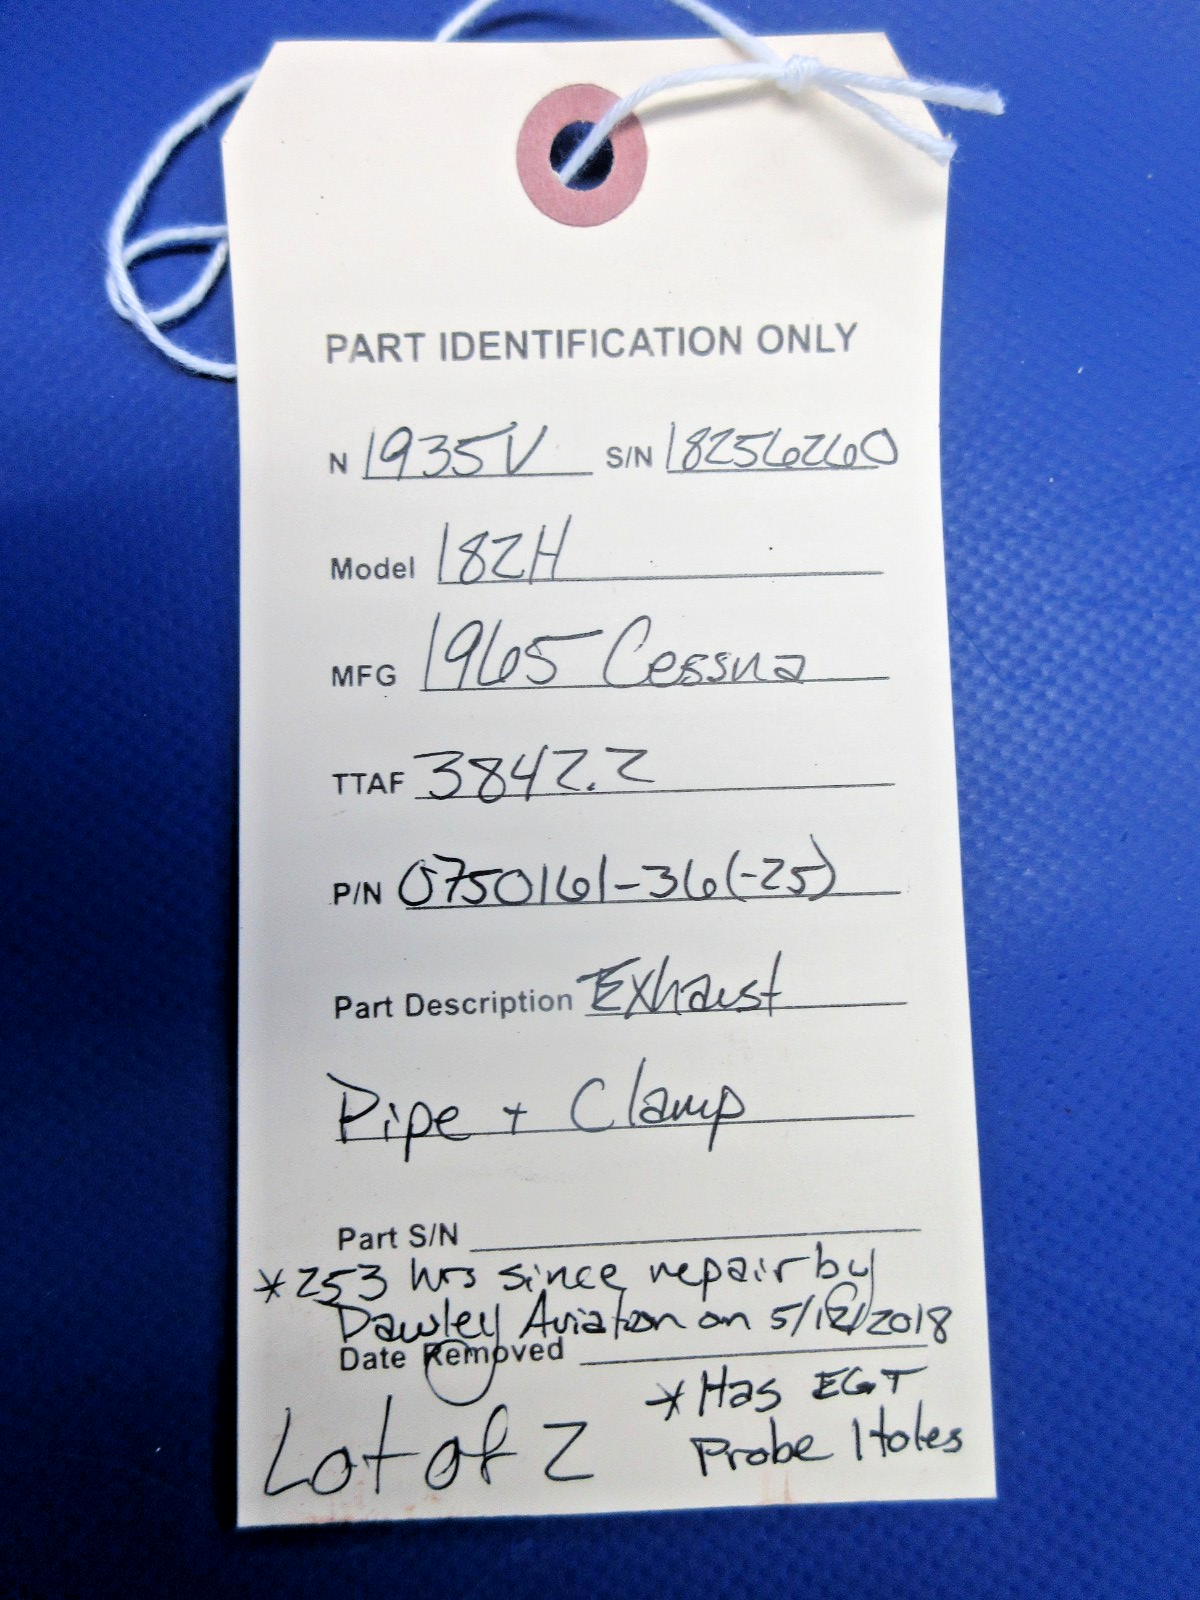 PART IDENTIFICATION ONLY
N 1935V S/N 18256260
Model 182H
MFG 1965 Cessna
TTAF 3842.2
P/N 0750161-36(-25)
Part Description Exhaust
Pipe + Clamp
Part S/N
*253 hrs since repair by
Dawley Aviation on
Date Removed
* Has EGT
Lot of 2
Probe Holes